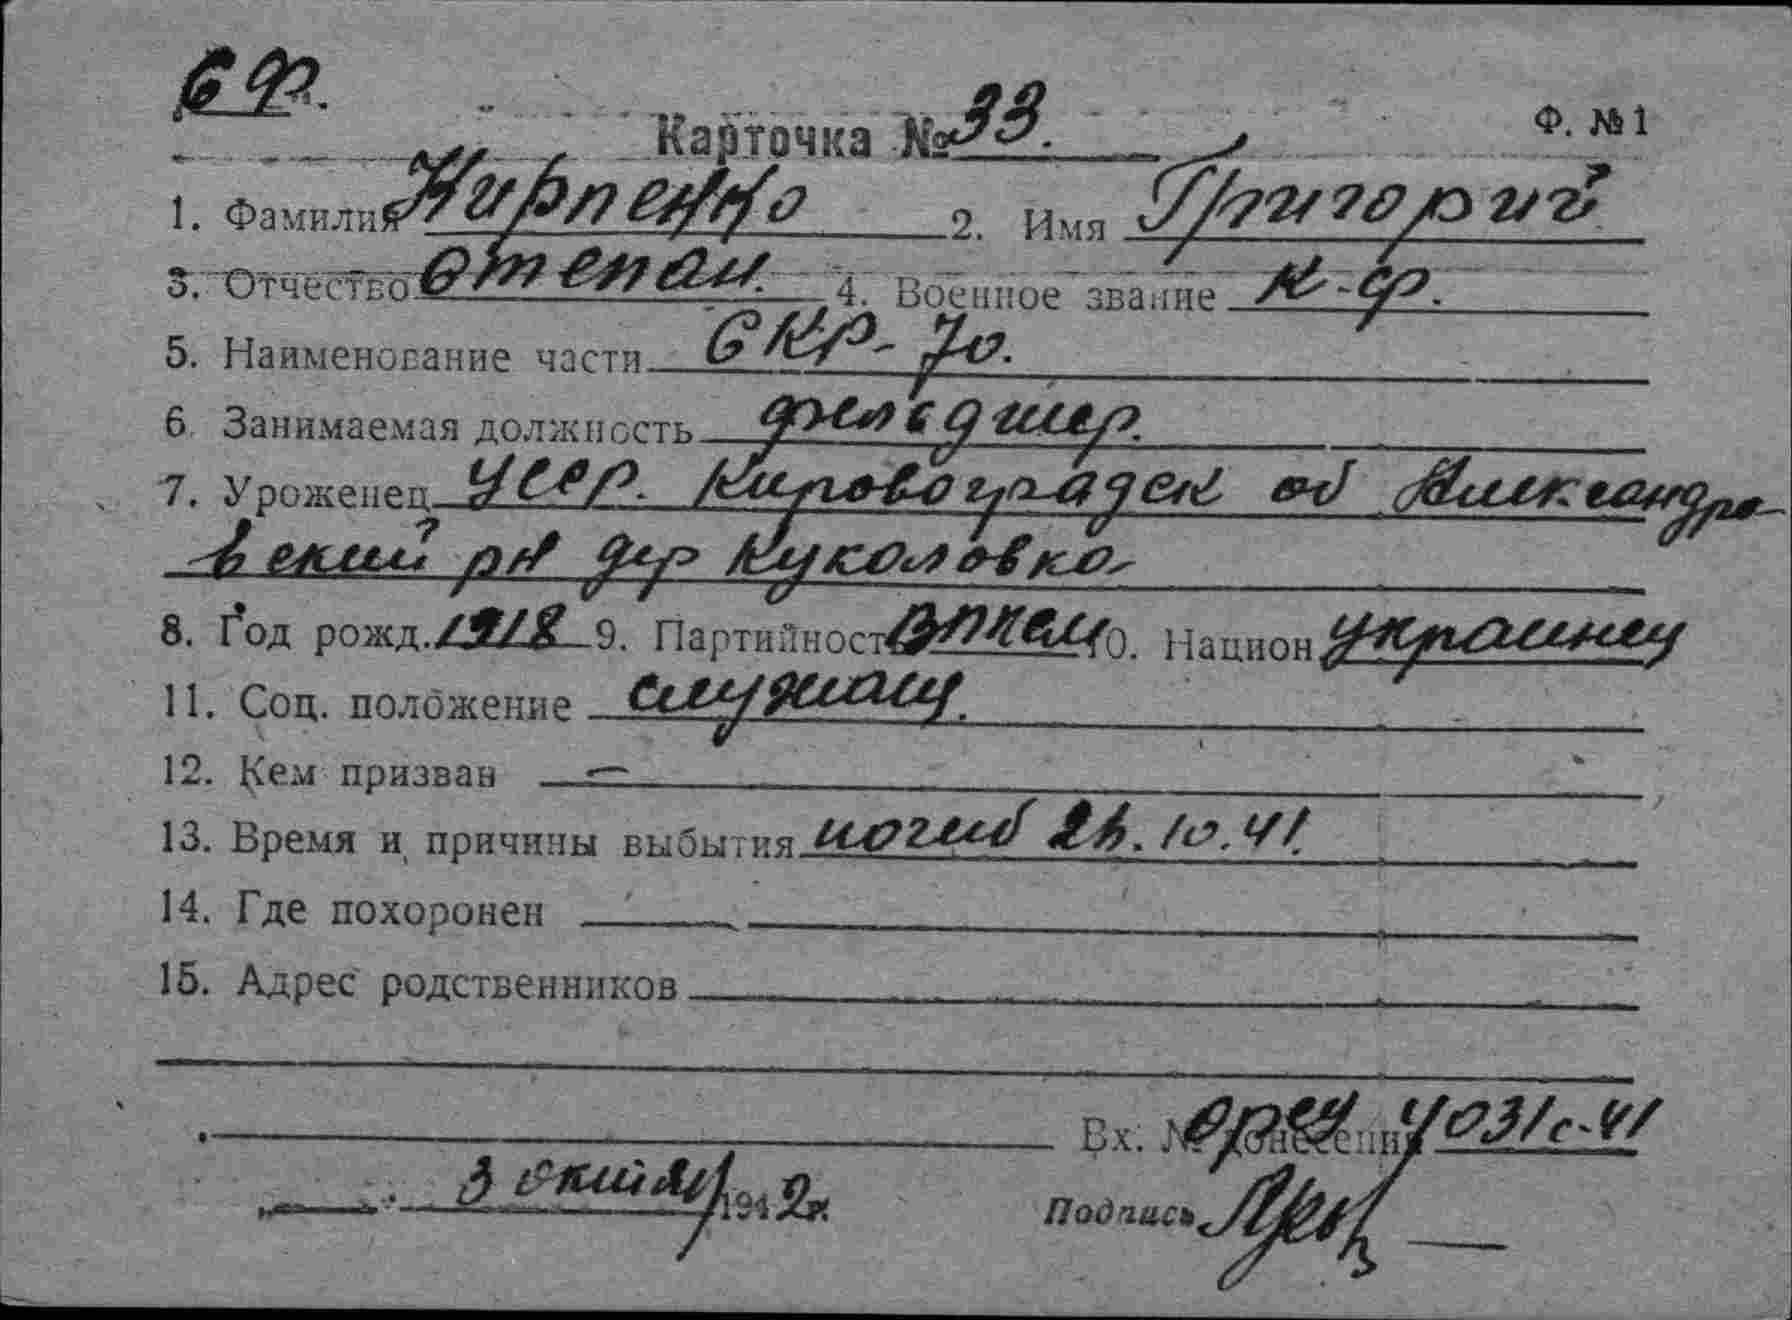 СФ.
Карточка № 33. Ф. №1
1. Фамилия Кирпенко 2. Имя Григорий
3. Отчество Степан. 4. Военное звание К-ф.
5. Наименование части СКР-70.
6. Занимаемая должность фельдшер.
7. Уроженец УССР. Кировоградск об Александро
вский рн дер Куколовко
8. Год рожд. 1918 9. Партийность ВЛКСМ 10. Национ Украинец
11. Соц. положение служащ.
12. Кем призван —
13. Время и причины выбытия погиб 26.10.41.
14. Где похоронен
15. Адрес родственников
Вх. № донесения 4031с-41
3 1942г.
Подпись